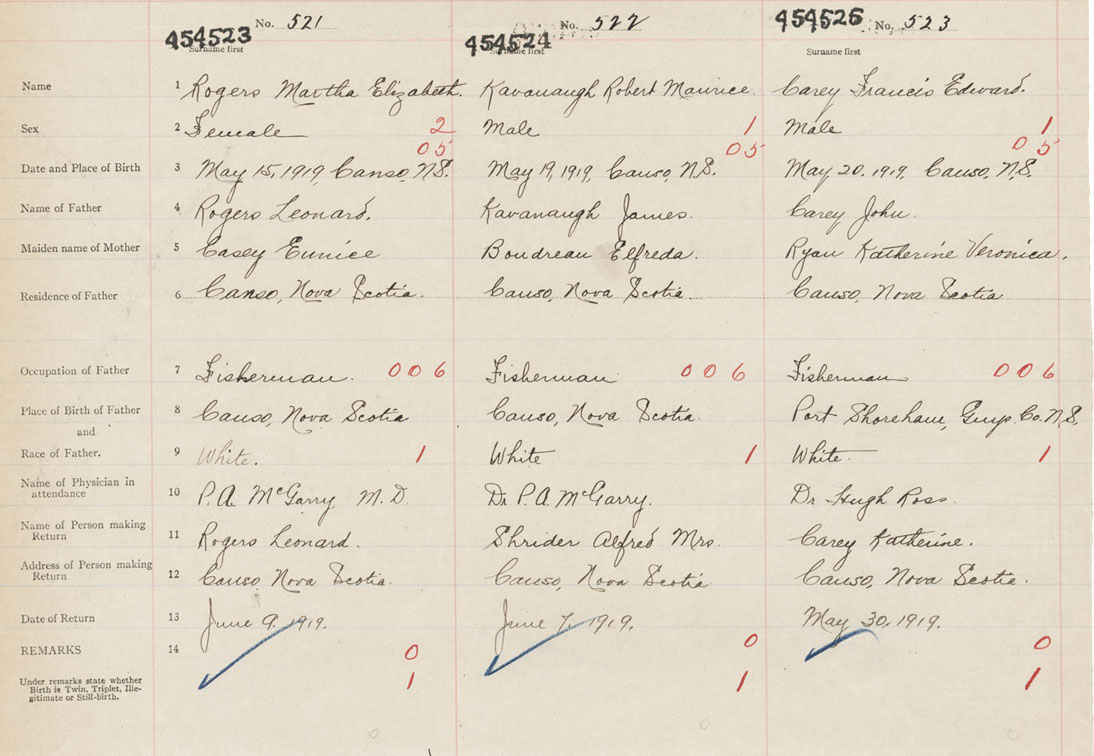 No. 521 No. 522 No. 523
454523 454524 454525
Surname first Surname first Surname first
Name 1 Rogers Martha Elizabeth. Kavanaugh Robert Maurice. Carey Francis Edward.
Sex 2 Female 2 Male 1 Male 1
05 05 05
Date and Place of Birth 3 May 15, 1919, Canso, N.S. May 19, 1919, Canso, N.S. May 20, 1919, Canso, N.S.
Name of Father 4 Rogers Leonard. Kavanaugh James. Carey John.
Maiden name of Mother 5 Casey Eunice Boudreau Elfreda. Ryan Katherine Veronica.
Residence of Father 6 Canso, Nova Scotia. Canso, Nova Scotia. Canso, Nova Scotia
Occupation of Father 7 Fisherman. 006 Fisherman 006 Fisherman 006
Place of Birth of Father 8 Canso, Nova Scotia Canso, Nova Scotia. Port Shoreham, Guys. Co. N.S.
and
Race of Father. 9 White. 1 White 1 White. 1
Name of Physician in
attendance 10 P.A. McGarry M.D. Dr P.A. McGarry. Dr Hugh Ross.
Name of Person making
Return 11 Rogers Leonard. Shrider Alfred Mrs. Carey Katherine.
Address of Person making
Return 12 Canso Nova Scotia. Canso, Nova Scotia Canso, Nova Scotia.
Date of Return 13 June 9, 1919. June 7, 1919. May 30, 1919.
REMARKS 14 0 0 0
Under remarks state whether
Birth is Twin, Triplet, Ille-
gitimate or Still-birth. 1 1 1